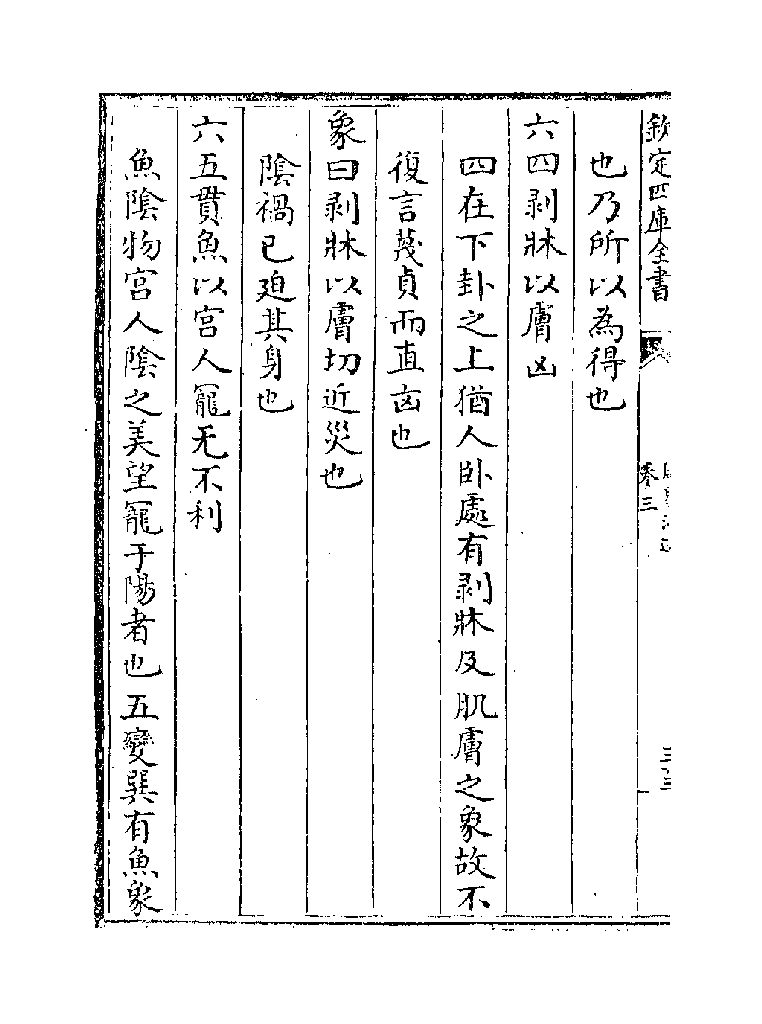 欽定四庫全書
卷三
也乃所以為得也
六四剥牀以膚凶
四在下卦之上猶人卧處有剥牀及肌膚之象故不
復言蔑貞而直凶也
象曰剥牀以膚切近災也
陰禍已廹其身也
六五貫魚以宫人寵无不利
魚隂物宫人隂之美望寵于陽者也五變巽有魚象